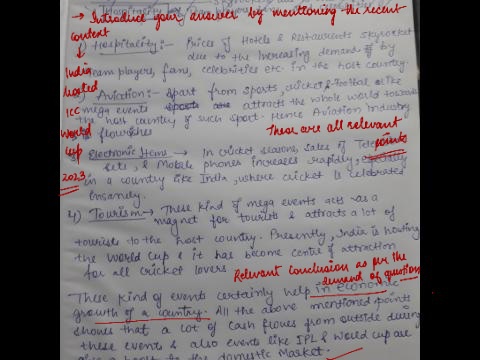 → Introduce your answer by mentioning the recent
context
↓
India
hosted
ICC
World
Cup
2023
Hospitality:- Prices of Hotels & Restaurants skyrocket
due to the increasing demand by
team players, fans, celebrities etc. in the host country.
Aviation:- Apart from sports, cricket & football, alike
mega events attract the whole world towards
the host country of such sport. Hence Aviation Industry
flourishes
These are all relevant
points
Electronic Items → In cricket seasons, sales of
sets, & Mobile phones increases rapidly,
in a country like India, where cricket is celebrated
insanely.
4) Tourism → These kind of mega events acts as a
magnet for tourists & attracts a lot of
tourists to the host country. Presently, India is hosting
the World Cup & it has become centre of attraction
for all cricket lovers
Relevant conclusion as per the
demand of question
These kind of events certainly help in economic
growth of a country. All the above mentioned points
shows that a lot of cash flows from outside during
these events & also events like IPL & World Cup are
a boost to the domestic market.